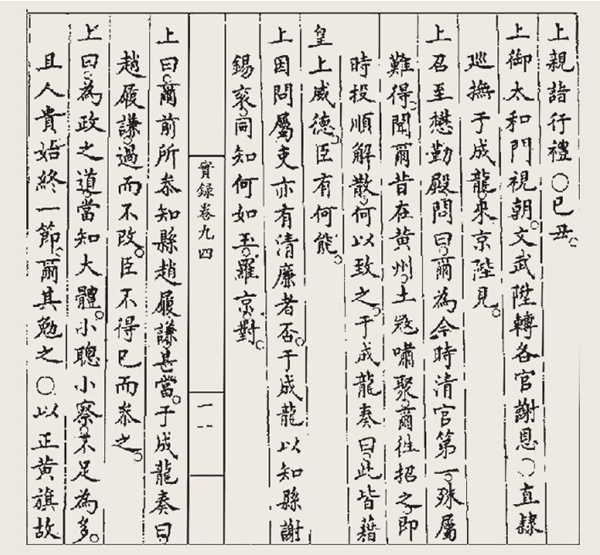 上親詣行禮○己丑。
上御太和門視朝。文武陞轉各官謝恩○直隸
巡撫于成龍來京陛見。
上召至懋勤殿問曰。爾為今時清官第一。殊屬
難得。聞爾昔在黃州。土寇嘯聚。爾往招之。即
時投順解散。何以致之。于成龍奏曰。此皆藉
皇上威德。臣有何能。
上因問屬吏亦有清廉者否。于成龍以知縣謝
錫袞。同知何如玉。羅京對。
實錄卷九四
一一
上曰。爾前所叅知縣趙履謙甚當。于成龍奏曰
趙履謙過而不改。臣不得已而叅之。
上曰。為政之道。當知大體。小聰小察。不足為多。
且人貴始終一節。爾其勉之○以正黃旗故